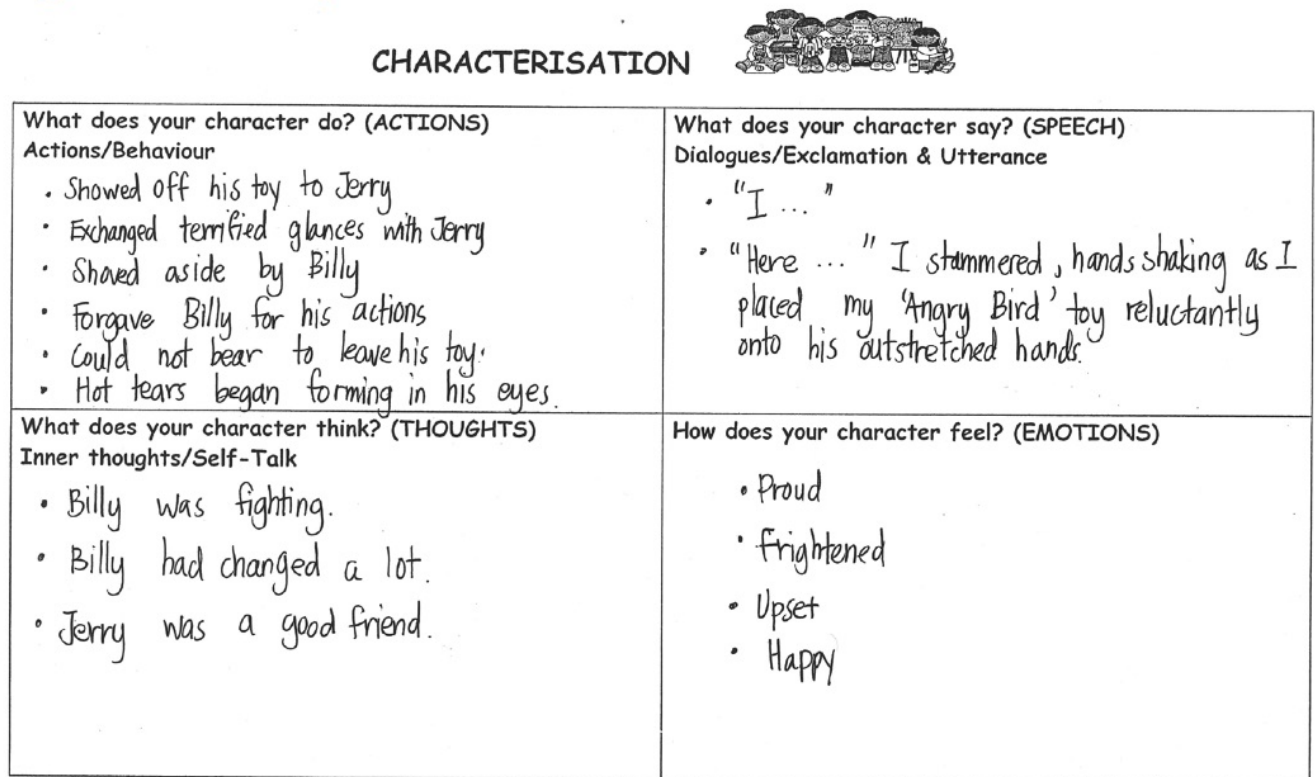 CHARACTERISATION
What does your character do? (ACTIONS)
Actions/Behaviour
• Showed off his toy to Jerry
• Exchanged terrified glances with Jerry
• Shoved aside by Billy
• Forgave Billy for his actions
• Could not bear to leave his toy.
• Hot tears began forming in his eyes.
What does your character say? (SPEECH)
Dialogues/Exclamation & Utterance
• "I ... "
• "Here ... " I stammered, hands shaking as I
placed my 'Angry Bird' toy reluctantly
onto his outstretched hands.
What does your character think? (THOUGHTS)
Inner thoughts/Self-Talk
• Billy was fighting.
• Billy had changed a lot.
• Jerry was a good friend.
How does your character feel? (EMOTIONS)
• Proud
• Frightened
• Upset
• Happy